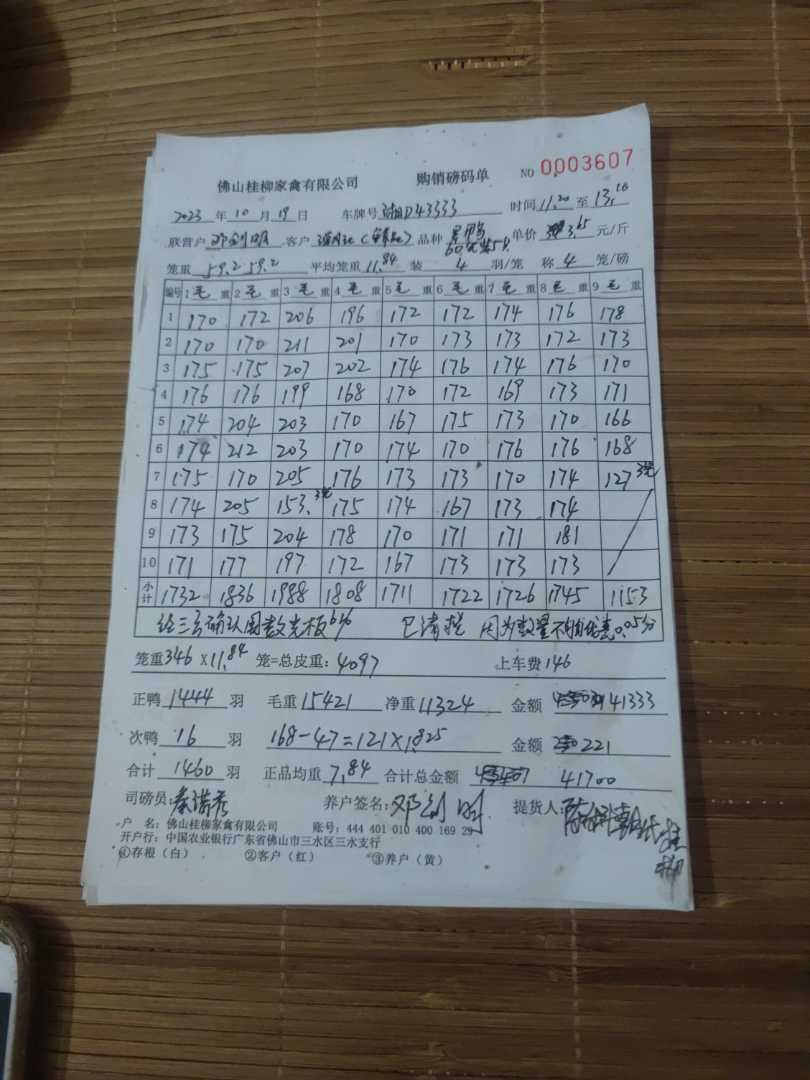 佛山桂柳家禽有限公司 购销磅码单 NO 0003607
2023 年 10 月 19 日 车牌号 湘D43333 时间 11.20 至 13.16
联营户 邓创明 客户 品种 单价 3.65 元/斤
笼重 59.2 59.2 平均笼重 11.84 装 4 羽/笼 称 4 笼/磅
编号 1 毛 重 2 毛 重 3 毛 重 4 毛 重 5 毛 重 6 毛 重 7 毛 重 8 毛 重 9 毛 重
1 170 172 206 196 172 172 174 176 178
2 170 170 211 201 170 173 173 172 173
3 175 175 207 202 174 176 174 176 170
4 176 176 199 168 170 172 169 173 171
5 174 204 203 170 167 175 173 170 166
6 174 212 203 170 174 170 176 176 168
7 175 170 205 176 173 173 170 174 127 3笼
8 174 205 153 3笼 175 174 167 173 174
9 173 175 204 178 170 171 171 181
10 171 177 197 172 167 173 173 173
小计 1732 1836 1988 1808 1711 1722 1726 1745 1153
经三方确认 因数 0.05分
笼重 346 X 11.84 笼=总皮重: 4097 上车费 146
正鸭 1444 羽 毛重 15421 净重 11324 金额 41333
次鸭 16 羽 168-47=121X1.825 金额 221
合计 1460 羽 正品均重 7.84 合计总金额 41700
司磅员: 养户签名: 邓创明 提货人:
户 名: 佛山桂柳家禽有限公司 账号: 444 401 010 400 169 29
开户行: 中国农业银行广东省佛山市三水区三水支行
①存根(白) ②客户(红) ③养户(黄)